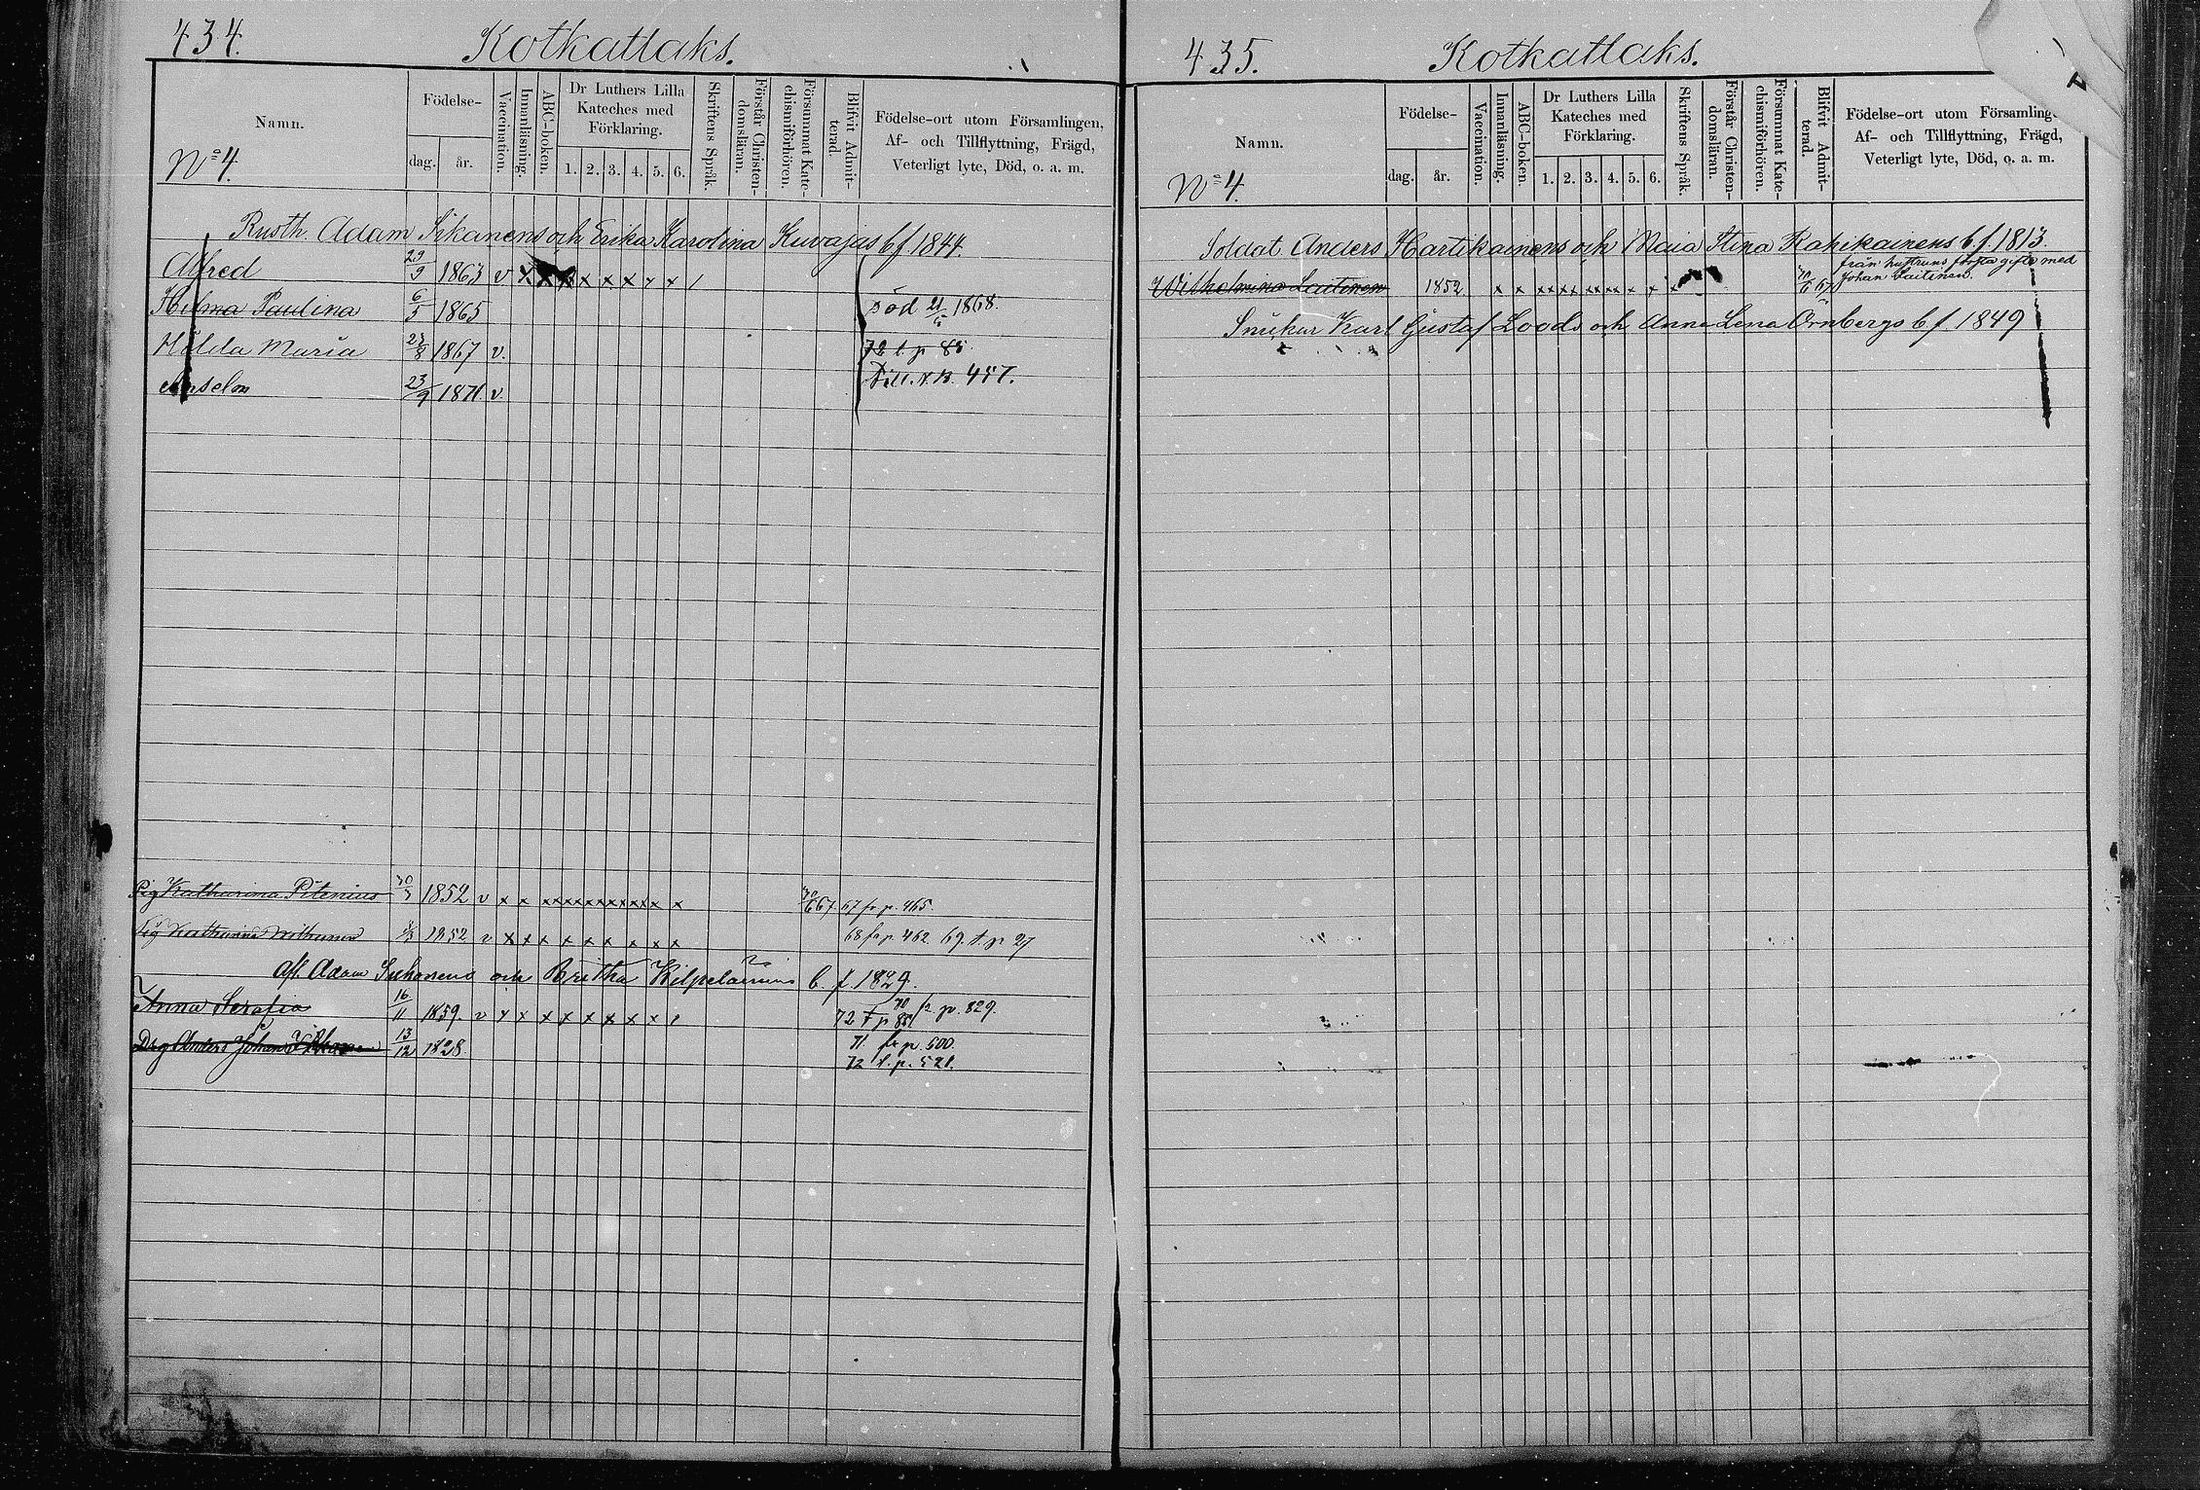 434.
Kotkatlaks.
Namn.
Födelse-
dag.
år.
Vaccination.
Innanläsning.
ABC-boken.
Dr Luthers Lilla
Kateches med
Förklaring.
1. 2. 3. 4. 5. 6.
Skriftens Språk.
Förstår Christen-
domsläran.
Försummat Kate-
chismiförhören.
Blifvit Admit-
terad.
Födelse-ort utom Församlingen,
Af- och Tillflyttning, Frägd,
Veterligt lyte, Död, o. a. m.
No 4.
Rusth. Adam Sikanens och Erika Karolina Kuvajas b f 1844.
Alfred 29/9 1863 v x x x x x x x x /
Hilma Paulina 6/5 1865 Död 1868.
Hilda Maria 1867 v. 72 t. p 85
Anselm 23/9 1871 v. Till. N.B. 457.
Pig Katharina Pitenius 1852 v x x x x x x x x x x x x x 67 67 fr p. 465.
Pig Katharina 1852 v x x x x x x x x x 68 fr p 462. 69. t. p 27
Afl. Adam Suhonens och Britha Kilpeläinens b. f. 1829.
Anna Serafia 16/11 1859. v x x x x x x x x 72 t p 85 70 fr p. 829.
Drg Anders Johan 13/12 1828. 71 fr p. 500.
72 t. p. 521.
435.
Kotkatlaks.
Namn.
Födelse-
dag.
år.
Vaccination.
Innanläsning.
ABC-boken.
Dr Luthers Lilla
Kateches med
Förklaring.
1. 2. 3. 4. 5. 6.
Skriftens Språk.
Förstår Christen-
domsläran.
Försummat Kate-
chismiförhören.
Blifvit Admit-
terad.
Födelse-ort utom Församling
Af- och Tillflyttning, Frägd,
Veterligt lyte, Död, o. a. m.
No 4.
Soldat Anders Hartikainens och Maia Stina Kahikainens b. f. 1813.
från hustruns första gifte med
Wilhelmina Laitinen 1852 x x x x x x x x x x x x 67 Johan Laitinen.
Karl Gustaf Loods och Anna Lena Örnbergs b f. 1849